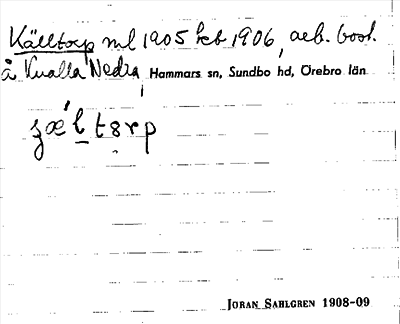 Källtorp ml 1905 kb 1906, aeb. bost.
å Kvalla Nedra, Hammars sn, Sundbo hd, Örebro län
JÖRAN SAHLGREN 1908-09